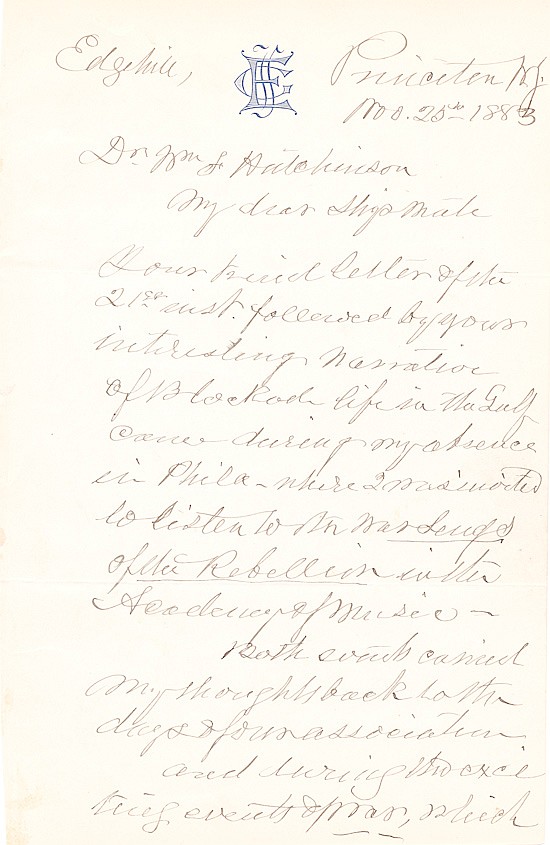 Edgehill,
Princeton N.J.
Nov. 25th 1883
Dr Wm F Hutchinson
My dear Shipmate
Your kind letter of the
21st inst. followed by your
interesting narrative
of Blockade life in the Gulf
came during my absence
in Phila - where I was invited
to listen to the War Songs
of the Rebellion in the
Academy of Music -
Both events carried
my thoughts back to the
days of our association
and during the exci
ting events of war, which